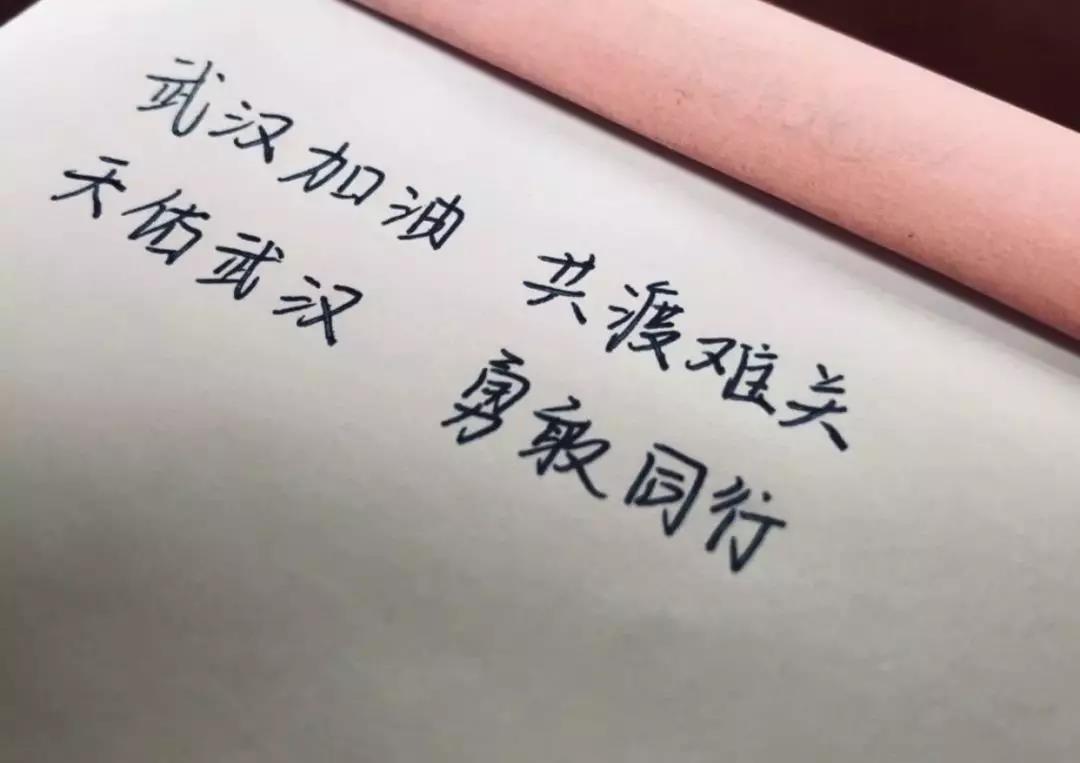 武汉加油 共渡难关
天佑武汉 勇敢同行